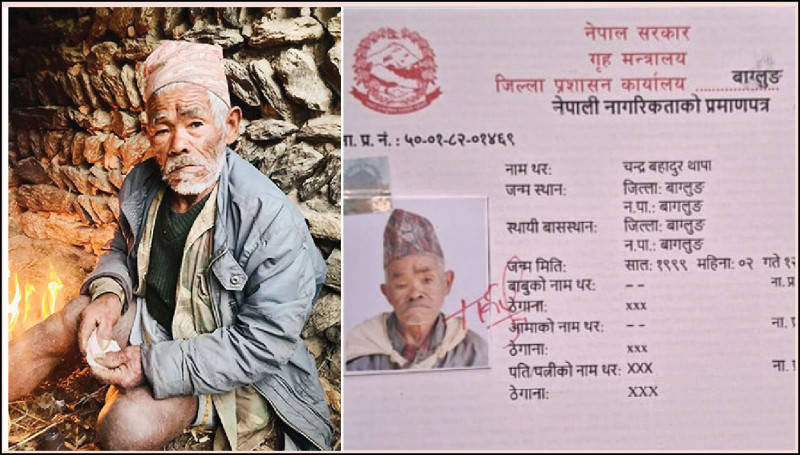 नेपाल सरकार
गृह मन्त्रालय
जिल्ला प्रशासन कार्यालय ............ बाग्लुङ
नेपाली नागरिकताको प्रमाणपत्र
ना. प्र. नं. : ५०-०१-८२-०१४६९
नाम थर: चन्द्र बहादुर थापा
जन्म स्थान: जिल्ला: बाग्लुङ
न.पा.: बागलुङ
स्थायी बासस्थान: जिल्ला: बाग्लुङ
न.पा.: बागलुङ
जन्म मिति: साल: १९९९ महिना: ०२ गते १२
बाबुको नाम थर: -- ना. प्र
ठेगाना: xxx
आमाको नाम थर: -- ना. प्र
ठेगाना: xxx
पति/पत्नीको नाम थर: XXX ना. प्र
ठेगाना: XXX